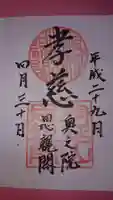 平成二十九年
奥之院
孝慈
思親閣
四月三十日